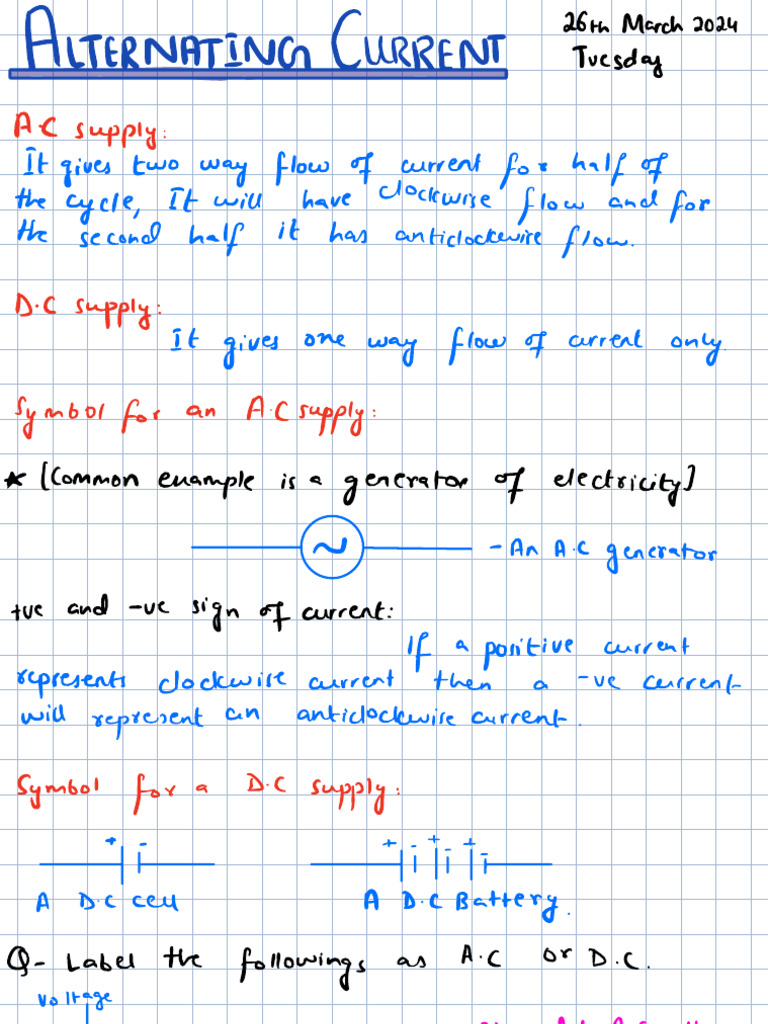 ALTERNATING CURRENT
26th March 2024
Tuesday
A.C supply:
It gives two way flow of current for half of
the cycle, It will have clockwise flow and for
the second half it has anticlockwire flow.
D.C supply:
It gives one way flow of current only
Symbol for an A.C supply:
* [Common example is a generator of electricity]
~ - An A.C generator
+ve and -ve sign of current:
If a positive current
represents clockwise current then a -ve current
will represent an anticlockwire current.
Symbol for a D.C supply:
+ - + - + - + -
A D.C cell A D.C Battery.
Q- Label the followings as A.C or D.C.
voltage